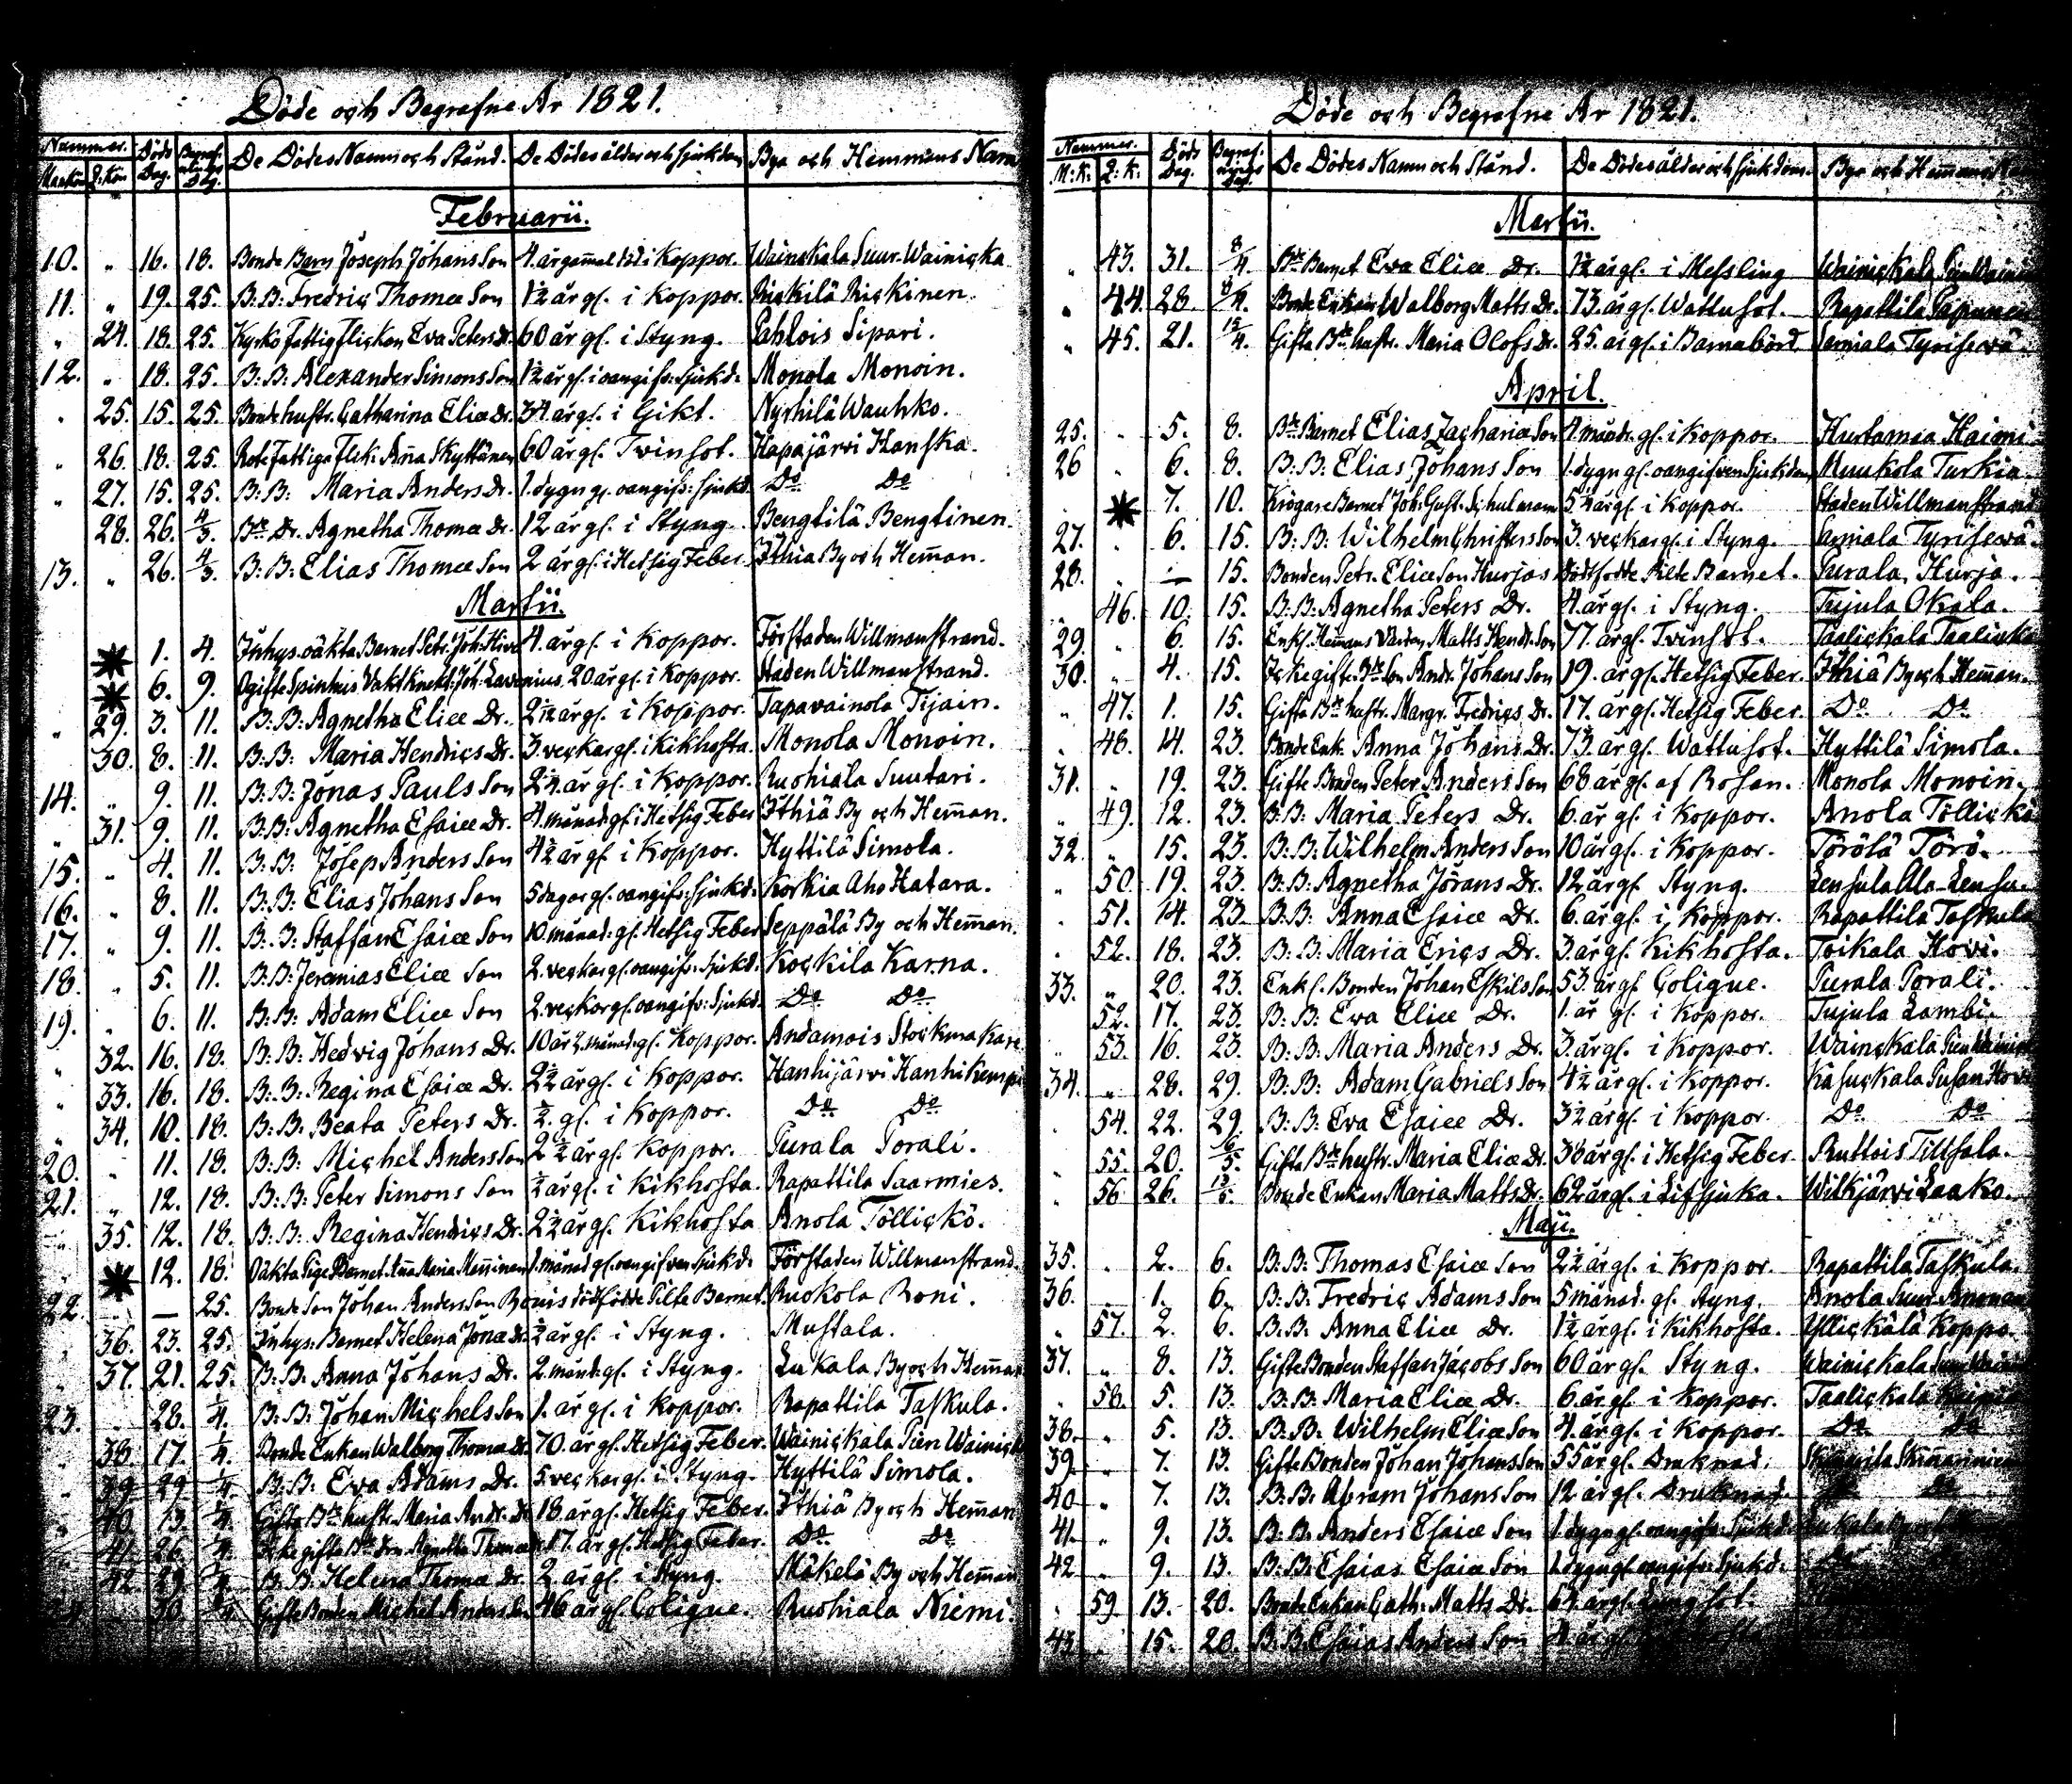 Döde och Begrafne År 1821.
Nummer. Döds Dag. Begraf- Dag. De Dödes Namn och Stånd. De Dödes ålder och sjukdom Bya och Hemmans Namn
Mankön Q:kön
Februarii.
10. " 16. 18. Bonde Barn Joseph Johans Son 4. år gammal död i Koppor. Wainikala Suur Wainicka
11. " 19. 25. B.B: Fredric Thomæ Son 1½ år gl. i Koppor. Rickilä Rickinen.
" 24. 18. 25. Kyrko fattig Flickan Eva Peters dr. 60 år gl. i Styng. Lahlois Sipari.
12. " 18. 25. B:B: Alexander Simons Son 1½ år gl. i oangifv: Sjukd: Monola Monoin.
" 25. 15. 25. Bonde hustr. Catharina Eliæ Dr. 34. år gl. i Gikt. Nychilä Wauhko.
" 26. 18. 25. Rote Fattiga Flick: Aña Skyttänen 60 år gl. Tvinsot. Hapajärvi Hanska.
" 27. 15. 25. B:B: Maria Anders Dr. 1. dygn gl. oangifv: Sjukd. Do Do
" 28. 26. 4/3. Bde Dr. Agnetha Thomæ Dr. 12 år gl. i Styng Bengtilä Bengtinen.
13. " 26. 4/3. B:B: Elias Thomæ Son 2 år gl. i Hetsig Feber. Ithia By och Hem̃an.
Martii.
* 1. 4. Inhys. oäkta Barnet Petr. Joh: 4. år gl. i Koppor. Förstaden Willmanstrand.
* 6. 9. Ogifte Spinhus Vakt Knekt: Joh: Lavonius 20 år gl. i Koppor. Staden Willmanstrand.
" 29. 3. 11. B:B: Agnetha Eliæ Dr. 2 år gl. i Koppor. Tapavainola Tijain.
" 30. 8. 11. B:B: Maria Hendrics Dr. 3. veckar gl. i Kikhosta. Monola Monoin.
14. " 9. 11. B:B: Jonas Pauls Son 2½ år gl. i Koppor. Ruohiala Suutari.
" 31. 9. 11. B:B: Agnetha Esaiæ Dr. 4. månad: gl. i Hetsig Feber Ithiä By och Hem̃an.
15. " 4. 11. B:B: Josep Anders Son 4½ år gl. i Koppor. Hyttilä Simola.
16. " 8. 11. B:B: Elias Johans Son 5 dagar gl. oangifv: Sjukd: Korkia Aho Hatara.
17. " 9. 11. B:B: Staffan Esaiæ Son 10. månad: gl. Hetsig Feber Seppälä By och Hem̃an.
18. " 5. 11. B:B: Jeremias Eliæ Son 2. veckar gl. oangifv: Sjukd. Kockila Karna.
19. " 6. 11. B:B: Adam Eliæ Son 2. veckar gl. oangifv: Sjukd. Do Do
" 32. 16. 18. B:B: Hedvig Johans Dr. 10 år 2. månad: gl. Koppor. Andamois Stockma
" 33. 16. 18. B:B: Regina Esaiæ Dr. 2½ år gl. i Koppor. Hanhijärvi Hanhikempi
" 34. 10. 18. B:B: Beata Peters Dr. ½. gl. i Koppor. Do Do
20. " 11. 18. B:B: Michel Anders Son 2½ år gl. Koppor. Purala Porali.
21. " 12. 18. B:B: Peter Simons Son ½ år gl. i Kikhosta. Rapattila Saarmies.
" 35. 12. 18. B:B: Regina Hendrics Dr. 2½ år gl. Kikhosta Anola Töllickö.
* 12. 18. Oäkta Pige Barnet Aña Maria 1. månad gl. oangifven Sjukd: Förstaden Willmanstrand.
22. " — 25. Bonde Son Johan Anders Son Ronis dödfödde Pilte Barnet. Ruokola Roni.
" 36. 23. 25. Inhys: Barnet Helena Jonæ Dr. ½ år gl. i Styng. Mustala.
" 37. 21. 25. B:B: Anna Johans Dr. 2. månd: gl. i Styng. Lukala By och Hem̃an
23. " 28. 1/4. B:B: Johan Michels Son 1. år gl. i Koppor. Rapattila Taskula.
" 38. 17. 1/4. Bonde Enkan Walborg Thomæ Dr. 70. år gl. Hetsig Feber. Wainickala Pien Wainick
" 39. 29. 1/4. B:B: Eva Adams Dr. 5 veckar gl. i Styng. Hyttilä Simola.
" 40. 13. 1/4. Gifta Bde hustr. Maria Andr. Dr. 18. år gl. Hetsig Feber. Ithiä By och Hem̃an
" 41. 26. 1/4. Icke gifta Bde Agnetha Thomæ 17. år gl. Hetsig Feber. Do Do
" 42. 29. 1/4. B:B: Helena Thomæ Dr. 2 år gl. i Styng. Mäkelä By och Hem̃an
24. 30. Gifte Bonden Michel Anders Son 46 år gl. Colique. Ruohiala Niemi.
Döde och Begrafne År 1821.
Nummer. Döds Dag. Begraf- Dag. De Dödes Namn och Stånd. De Dödes ålder och sjukdom. Bya och Hem̃ans
M:K: Q:K:
Martii.
" 43. 31. 8/4. Bde Barnet Eva Eliæ Dr. 1½ år gl. i Messling Wainickala Pien
" 44. 28. 8/4. Bonde Enkan Walborg Matts Dr. 73. år gl. Wattusot. Rapattila
" 45. 21. 15/4. Gifta Bde hustr. Maria Olofs Dr. 25. år gl. i Barnabörd Tyrisevä.
April.
25. " 5. 8. Bde Barnet Elias Zachariæ Son 4. månd: gl. i Koppor. Hurtamia Haimi
26 " 6. 8. B:B: Elias Johans Son 1. dygn gl. oangifven Sjukdom Muukola Turkia.
* 7. 10. Krögare Barnet Joh: Gust: Schulmann 5½ år gl. i Koppor. Staden Willmanstrand
27. " 6. 15. B:B: Wilhelm Christers Son 3. veckar gl. i Styng. Tyrisevä.
28. " — 15. Bonden Petr. Eliæ Son Hurjas dödfödde Pilte Barnet. Purala Hurja.
" 46. 10. 15. B:B: Agnetha Peters Dr. 4. år gl. i Styng. Tujula Okala.
29. " 6. 15. Enkl. Hem̃ans Värden Matts Hend: Son 77. år gl. Tvinsot. Taalickala Taalicka
30. " 4. 15. Icke gifte Bde Son Andr. Johans Son 19. år gl. Hetsig Feber. Ithiä By och Hem̃an.
" 47. 1. 15. Gifta Bde hustr. Margr. Fredrics Dr. 17. år gl. Hetsig Feber. Do Do
" 48. 14. 23. Bonde Enk: Anna Johans Dr. 73. år gl. Wattusot. Hyttilä Simola.
31. " 19. 23. Gifte Bonden Peter Anders Son 68 år gl. af Rosen. Monola Monoin.
" 49. 12. 23. B:B: Maria Peters Dr. 6. år gl. i Koppor. Anola Töllickö
32. " 15. 23. B:B: Wilhelm Anders Son 10 år gl. i Koppor. Törölä Törö.
" 50. 19. 23. B:B: Agnetha Jörans Dr. 12 år gl. Styng. Lensula Ala-Lensu.
" 51. 14. 23. B:B: Anna Esaiæ Dr. 6. år gl. i Koppor. Rapattila Taskula
" 52. 18. 23. B:B: Maria Erics Dr. 3. år gl. Kikhosta. Toikala Hovi.
33. " 20. 23. Enkl. Bonden Johan Eskils Son 53. år gl. Colique. Purala Porali.
52. 17. 23. B:B: Eva Eliæ Dr. 1. år gl. i Koppor. Tujula Lambi.
" 53. 16. 23. B:B: Maria Anders Dr. 3. år gl. i Koppor. Wainickala Pien
34. " 28. 29. B:B: Adam Gabriels Son 4½ år gl. i Koppor. Kasuckala
" 54. 22. 29. B:B: Eva Esaiæ Dr. 3½ år gl. i Koppor. Do Do
" 55. 20. 6/5. Gifta Bde hustr. Maria Eliæ Dr. 38 år gl. i Hetsig Feber. Ruttois Tillsala.
" 56 26. 13/5. Bonde Enkan Maria Matts Dr. 62 år gl. i Wilkjärvi Laako.
Maji.
35. " 2. 6. B:B: Thomas Esaiæ Son 2½ år gl. i Koppor. Rapattila Taskula.
36. " 1. 6. B:B: Fredric Adams Son 5 månad. gl. Styng. Anola Suur
" 57. 2. 6. B:B: Anna Eliæ Dr. 1½ år gl. i Kikhosta. Yllickälä Koppo.
37. " 8. 13. Gifte Bonden Staffan Jacobs Son 60 år gl. Styng. Wainickala
" 58. 5. 13. B:B: Maria Eliæ Dr. 6. år gl. i Koppor. Taalickala
38. " 5. 13. B:B: Wilhelm Eliæ Son 4. år gl. i Koppor. Do Do
39. " 7. 13. Gifte Bonden Johan Johans Son 55 år gl. Druknad.
40 " 7. 13. B:B: Abram Johans Son 12 år gl. Druknad. Do Do
41. " 9. 13. B:B: Anders Esaiæ Son 1. dygn gl. oangifv: Sjukd:
42 " 9. 13. B:B: Esaias Esaiæ Son 1. dygn gl. oangifv: Sjukd:
" 59. 13. 20. Bonde Enkan Cath: Matts Dr. år gl. Lungsot.
43. " 15. 20. B:B: Esaias Anders Son 4. år gl.